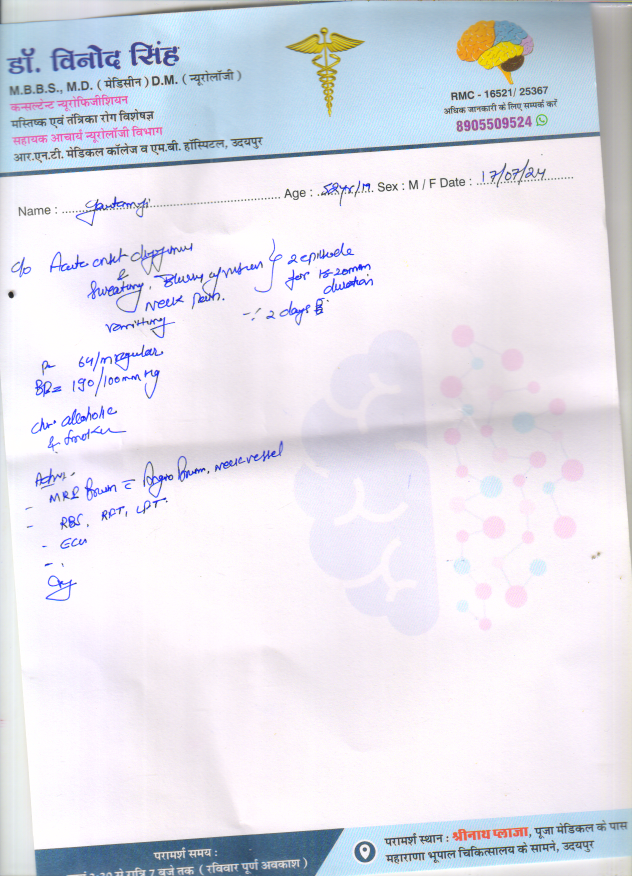 डॉ. विनोद सिंह
M.B.B.S., M.D. ( मेडिसीन ) D.M. ( न्यूरोलॉजी )
कन्सल्टेन्ट न्यूरोफिजीशियन
मस्तिष्क एवं तंत्रिका रोग विशेषज्ञ
सहायक आचार्य न्यूरोलॉजी विभाग
आर.एन.टी. मेडिकल कॉलेज व एम.बी. हॉस्पिटल, उदयपुर
RMC - 16521/ 25367
अधिक जानकारी के लिए सम्पर्क करें
8905509524
Name : Age : 52yr/M Sex : M / F Date : 17/07/24
c/o Acute onset
& Sweating, Blurring of vision 2 episode
Neck pain. for 15-20min duration
vomitting 2 days
64/m regular
BP= 190/100mmHg
chr. alcoholic
& smoker
Adv. -
- MRI Brain c Angio Brain, neck vessel
- RBS, RFT, LFT
- ECG
परामर्श समय :
से रात्रि 7 बजे तक ( रविवार पूर्ण अवकाश )
परामर्श स्थान : श्रीनाथ प्लाजा, पूजा मेडिकल के पास
महाराणा भूपाल चिकित्सालय के सामने, उदयपुर